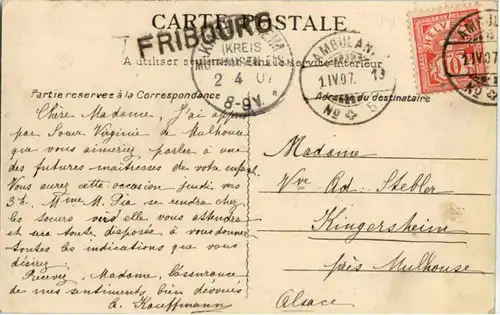 CARTE POSTALE
FRIBOURG
(KREIS
2 4 07
8-9V.
AMBULANT
1.IV.07. 13
No 5
HELVETIA
10
AMBULANT
1.IV.07
No
A utiliser seulement dans le service intérieur
Partie réservée à la Correspondance
Adresse du destinataire
Chère Madame, J'ai appris
par Soeur Virginie de Mulhouse
que vous aimeriez parler à une
des futures maîtresses de votre enfant.
Vous aurez cette occasion Jeudi vers
3 h. Mme M. Pia se rendra chez
les soeurs elle vous attendra
et sera toute disposée à vous donner
toutes les indications que vous
désirez.
Recevez, Madame, l'assurance
de mes sentiments bien dévoués
E. Kauffmann
Madame
Vve Ad: Stebler
Kingersheim
près Mulhouse
Alsace